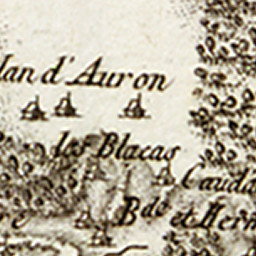 lan d'Auron
les Blacas
Cauda
Bde et Hern
re